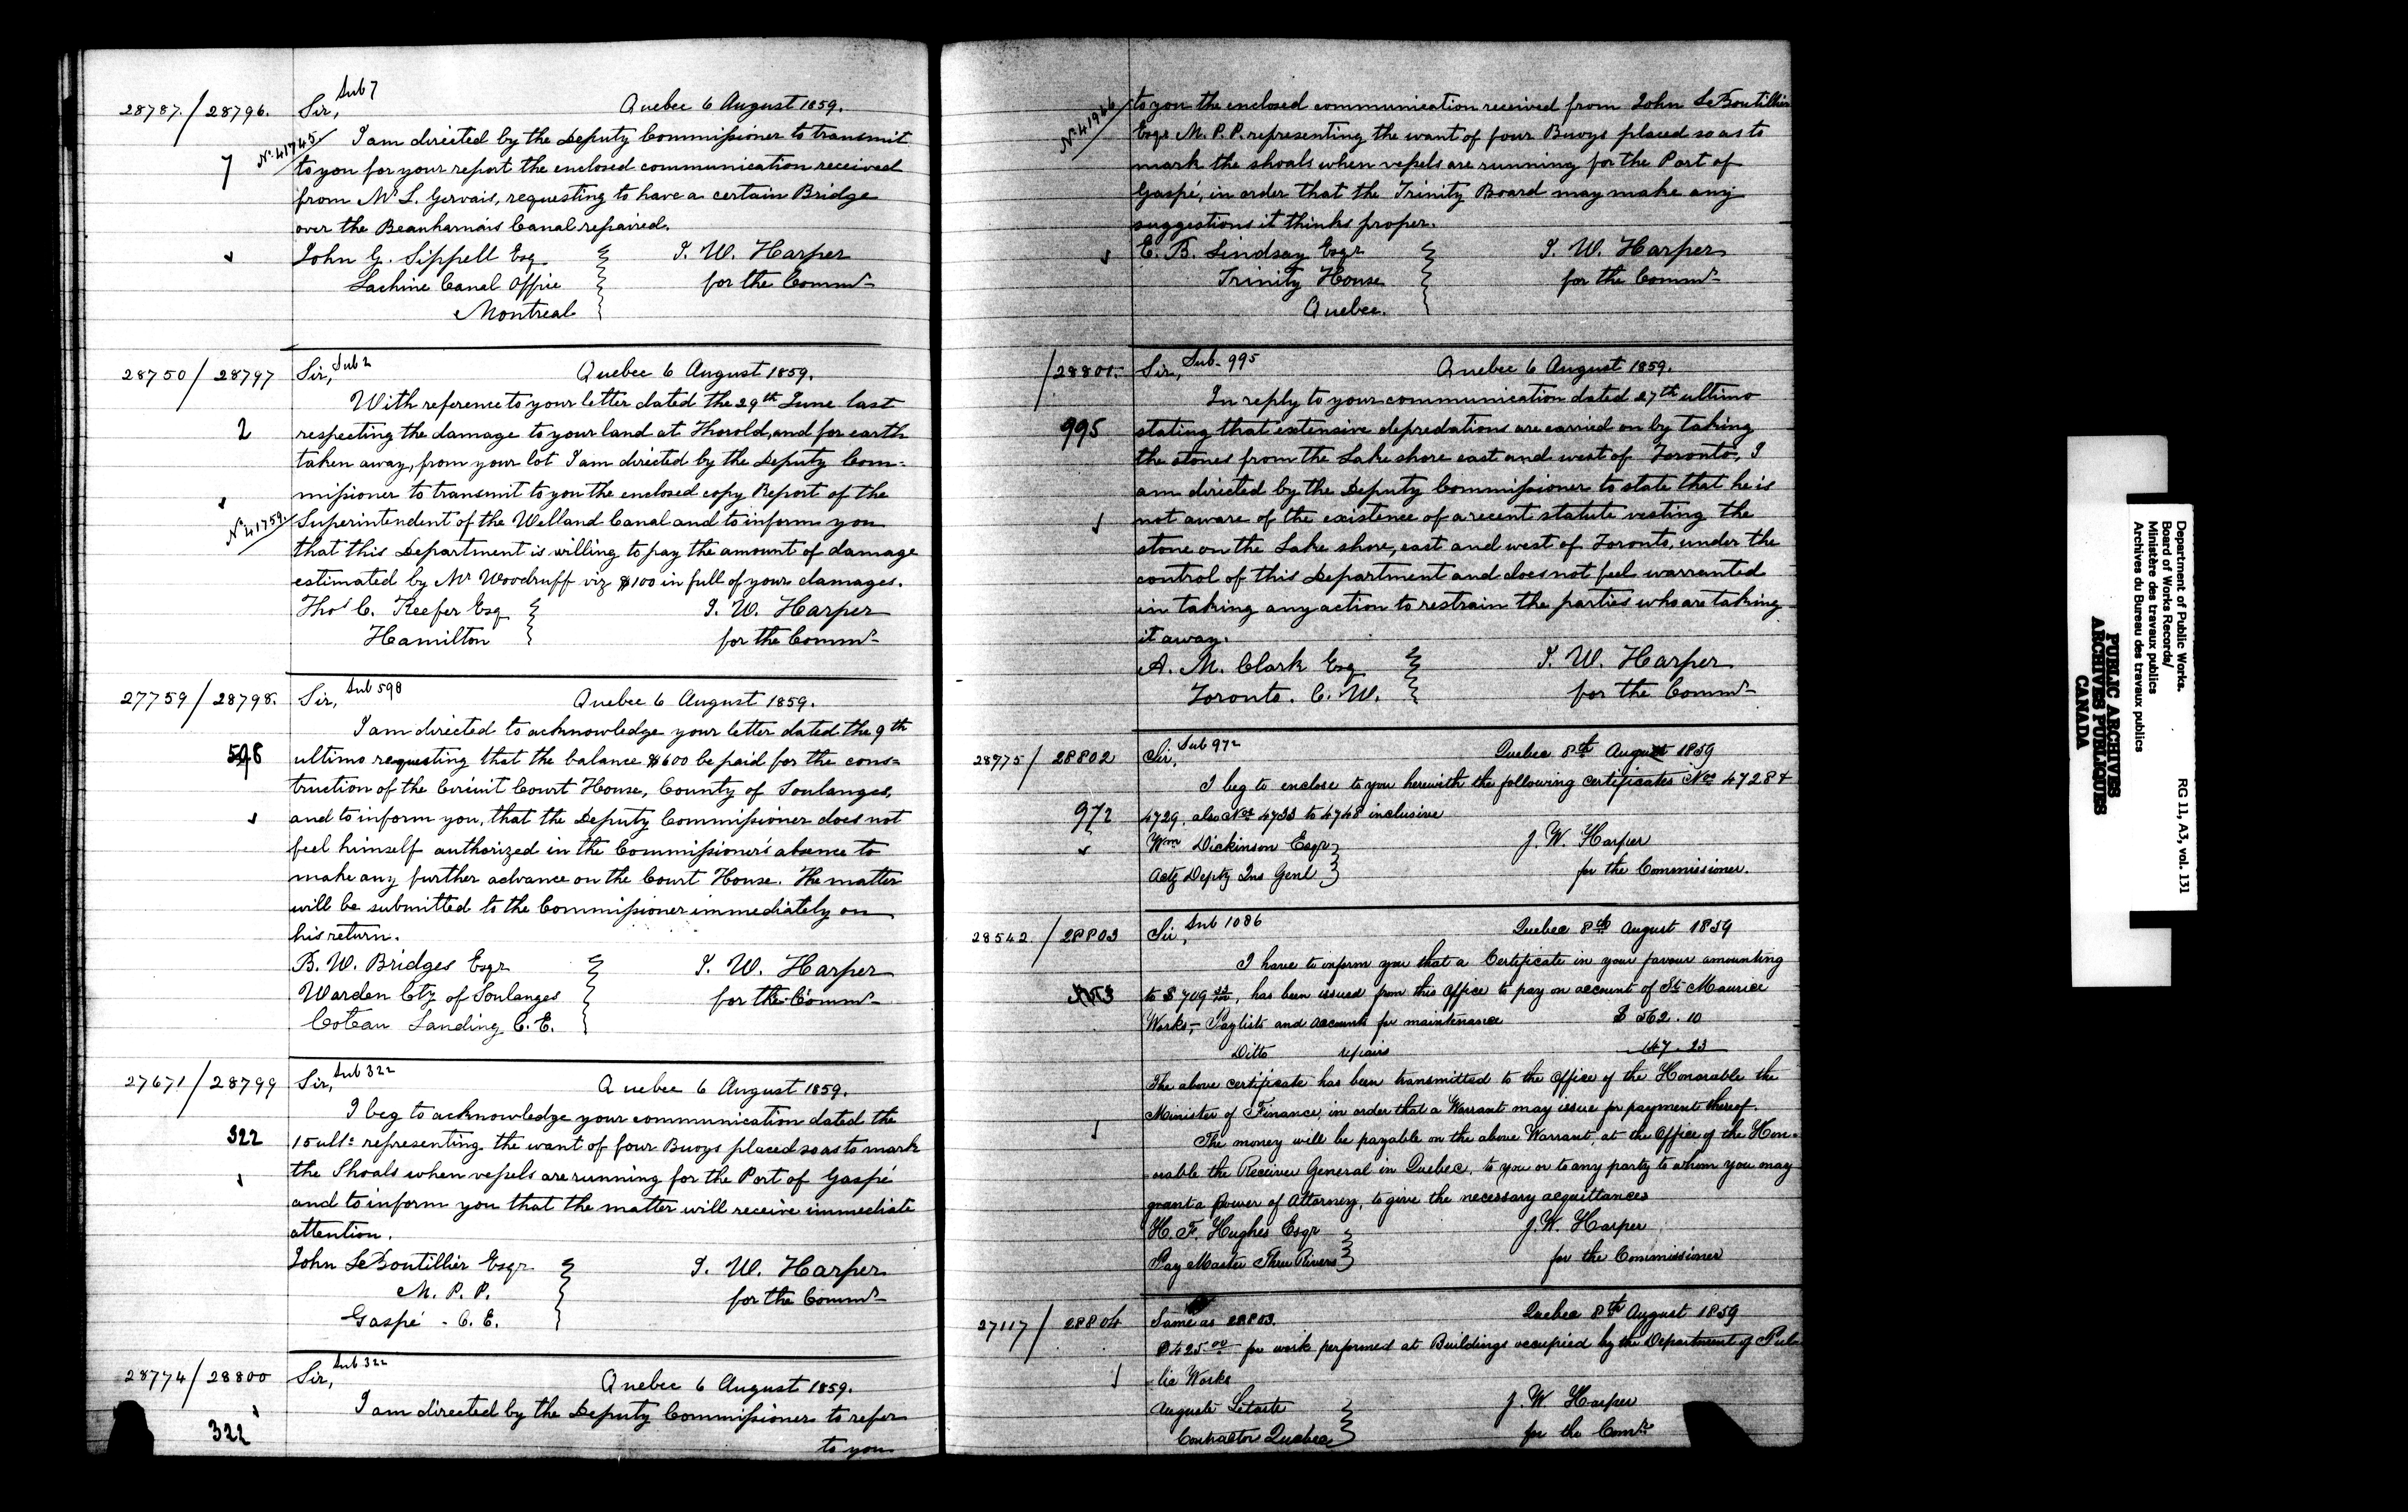 28787 / 28796. Sir, Sub 7 Quebec 6 August 1859.
7 No 41745 I am directed by the Deputy Commissioner to transmit
to you for your report the enclosed communication received
from Mr L. Gervais, requesting to have a certain Bridge
over the Beauharnais Canal repaired.
John G. Sippell Esq J. W. Harper
Lachine Canal Office for the Commr
Montreal
28750 / 28797 Sir, Sub 2 Quebec 6 August 1859.
With reference to your letter dated the 29th June last
2 respecting the damage to your land at Thorold, and for earth
taken away, from your lot I am directed by the Deputy Com=
missioner to transmit to you the enclosed copy Report of the
No 41759. Superintendent of the Welland Canal and to inform you
that this Department is willing to pay the amount of damage
estimated by Mr Woodruff viz $100 in full of your damages.
Thos C. Keefer Esq J. W. Harper
Hamilton for the Commr
27759 / 28798. Sir, Sub 598 Quebec 6 August 1859.
I am directed to acknowledge your letter dated the 9th
598 ultimo requesting that the balance $600 be paid for the cons=
truction of the Circuit Court House, County of Soulanges,
and to inform you, that the Deputy Commissioner does not
feel himself authorized in the Commissioner's absence to
make any further advance on the Court House. The matter
will be submitted to the Commissioner immediately on
his return.
B. W. Bridges Esqr J. W. Harper
Warden Cty of Soulanges for the Commr
Coteau Landing C. E.
27671 / 28799 Sir, Sub 322 Quebec 6 August 1859.
I beg to acknowledge your communication dated the
322 15 ulto representing the want of four Buoys placed so as to mark
the Shoals when vessels are running for the Port of Gaspé
and to inform you that the matter will receive immediate
attention.
John LeBoutillier Esqr J. W. Harper
M. P. P. for the Commr
Gaspé - C. E.
28774 / 28800 Sir, Sub 322 Quebec 6 August 1859.
I am directed by the Deputy Commissioner to refer
322 to you
to you the enclosed communication received from John LeBoutillier
Esqr M. P. P. representing the want of four Buoys placed so as to
mark the shoals when vessels are running for the Port of
Gaspé, in order that the Trinity Board may make any
suggestions it thinks proper.
E. B. Lindsay Esqr J. W. Harper
Trinity House for the Commr
Quebec.
/ 28801. Sir, Sub. 995 Quebec 6 August 1859.
In reply to your communication dated 27th ultimo
995 stating that extensive depredations are carried on by taking
the stones from the Lake shore east and west of Toronto, I
am directed by the Deputy Commissioner to state that he is
not aware of the existence of a recent statute vesting the
stone on the Lake shore, east and west of Toronto, under the
control of this Department and does not feel warranted
in taking any action to restrain the parties who are taking
it away.
A. M. Clark Esq J. W. Harper
Toronto. C. W. for the Commr
28775 / 28802 Sir, Sub 972 Quebec 8th August 1859
I beg to enclose to you herewith the following certificates Nos 4728 &
972 4729. also Nos 4733 to 4748 inclusive
Wm Dickinson Esqr J. W. Harper
Actg Depty Ins Genl for the Commissioner.
28542. / 28803 Sir, Sub 1086 Quebec 8th August 1859
I have to inform you that a Certificate in your favour amounting
to $709 33/100, has been issued from this Office to pay on account of St Maurice
Works,— Paylists and accounts for maintenance $ 562. 10
Ditto repairs 147. 23
The above certificate has been transmitted to the Office of the Honorable the
Minister of Finance, in order that a Warrant may issue for payment thereof.
The money will be payable on the above Warrant, at the Office of the Hon-
orable the Receiver General in Quebec, to you or to any party to whom you may
grant a Power of Attorney, to give the necessary acquittances
H. F. Hughes Esqr J. W. Harper
Pay Master Three Rivers for the Commissioner
27117 / 28804 Same as 28803. Quebec 8th August 1859
$425.00 for work performed at Buildings occupied by the Department of Pub-
lic Works
Auguste Letarte J. W Harper
Contractor Quebec for the Comr
Department of Public Works.
Board of Works Records/
Ministère des travaux publics
Archives du Bureau des travaux publics
RG 11, A3, vol. 131
PUBLIC ARCHIVES
ARCHIVES PUBLIQUES
CANADA